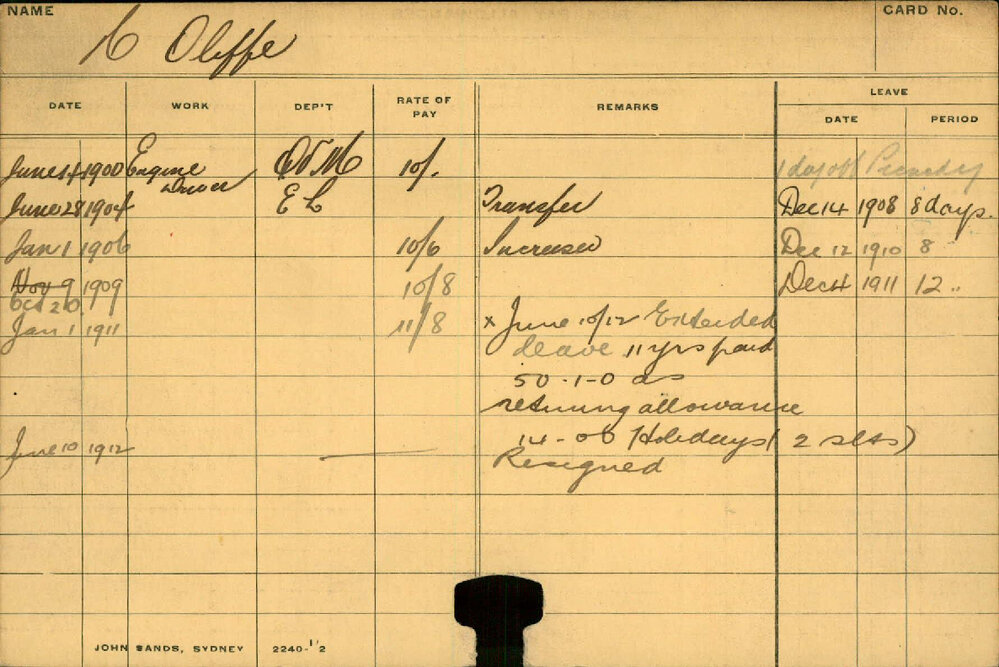 NAME
C Oliffe
CARD No.
DATE WORK DEP'T RATE OF PAY REMARKS LEAVE
DATE PERIOD
June 14 1900 Engine Driver QVM 10/. 1 day off
June 28 1904 E L Transfer Dec 14 1908 8 days.
Jan 1 1906 10/6 Increased Dec 12 1910 8
Nov 9 1909 10/8 Dec 4 1911 12 "
Oct 20
Jan 1 1911 11/8 x June 10/12 Extended
leave 11 yrs paid
50-1-0 as
retiring allowance
14-0-0 Holidays ( 2 sets )
June 10 1912 Resigned
JOHN SANDS, SYDNEY 2240-1'2